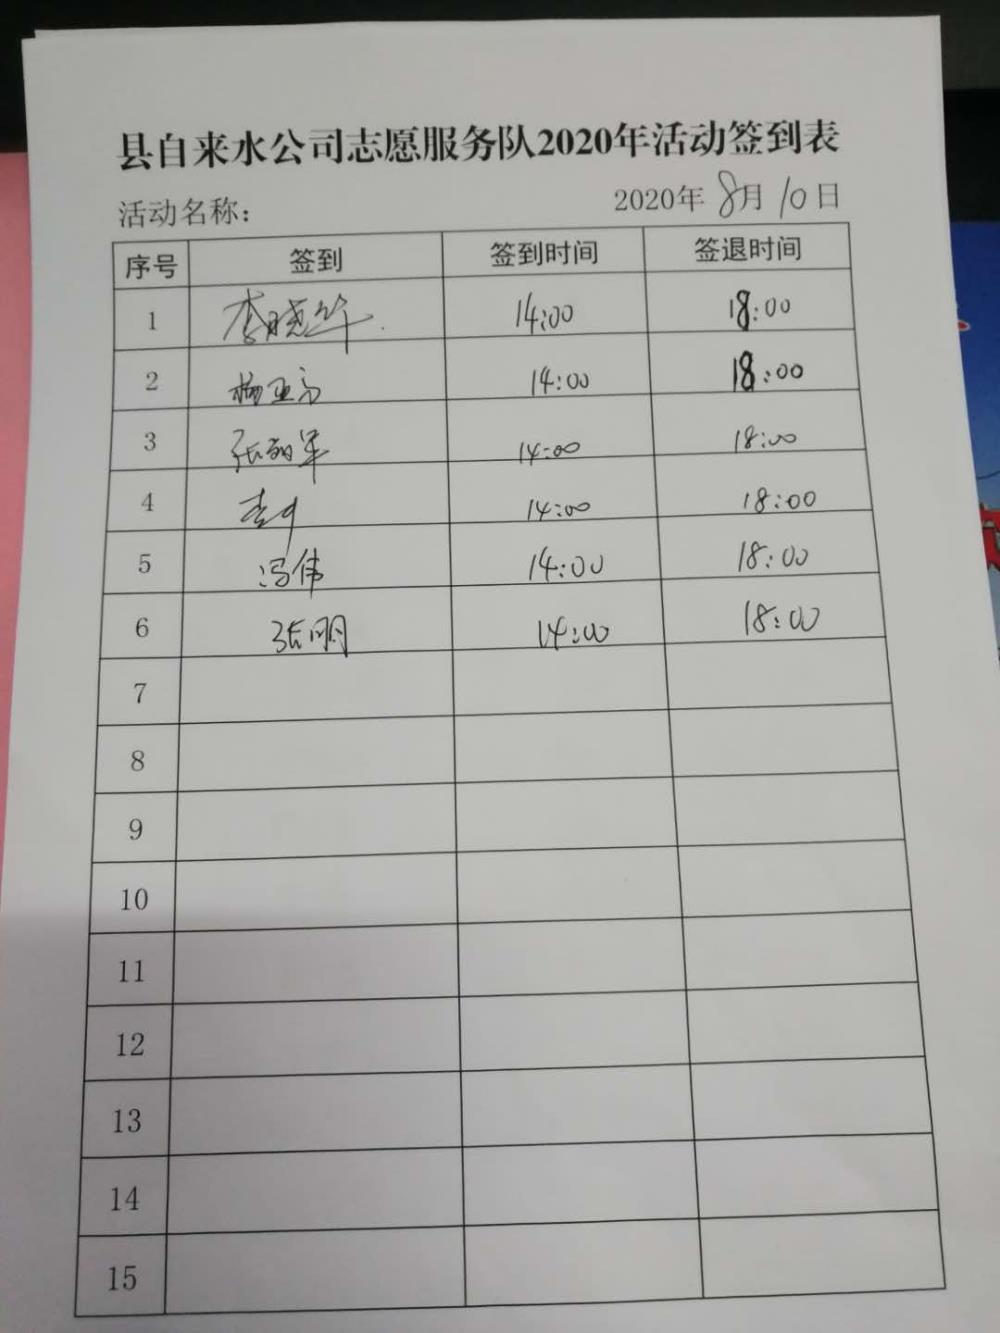 县自来水公司志愿服务队2020年活动签到表
活动名称: 2020年8月10日
序号 签到 签到时间 签退时间
1 李晓华 14:00 18:00
2 14:00 18:00
3 14:00 18:00
4 14:00 18:00
5 冯伟 14:00 18:00
6 张明 14:00 18:00
7
8
9
10
11
12
13
14
15